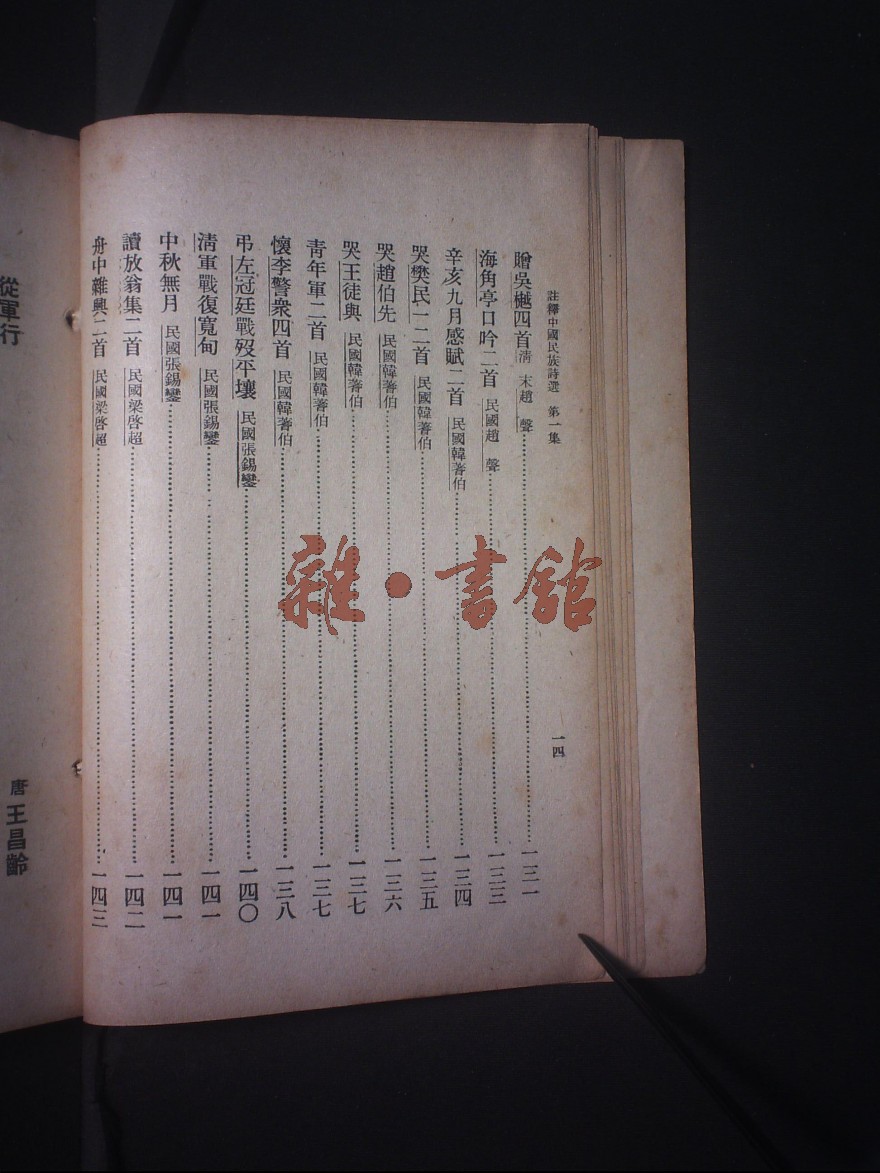 註釋中國民族詩選 第一集
一四
贈吳樾四首 清末趙聲 一三一
海角亭口吟二首 民國趙聲 一三三
辛亥九月感賦二首 民國韓蓍伯 一三四
哭樊民一二首 民國韓蓍伯 一三五
哭趙伯先 民國韓蓍伯 一三六
哭王徒與 民國韓蓍伯 一三七
青年軍二首 民國韓蓍伯 一三七
懷李警衆四首 民國韓蓍伯 一三八
弔左冠廷戰歿平壤 民國張錫鑾 一四〇
清軍戰復寬甸 民國張錫鑾 一四一
中秋無月 民國張錫鑾 一四一
讀放翁集二首 民國梁啓超 一四二
舟中雜興二首 民國梁啓超 一四三
從軍行
唐 王昌齡
雜・書館